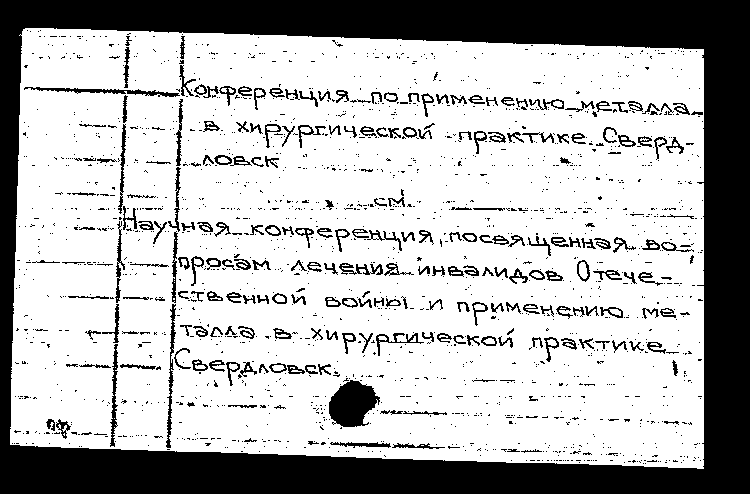 Конференция по применению металла
в хирургической практике. Сверд-
ловск
см.
Научная конференция, посвященная во-
просам лечения инвалидов Отече-
ственной войны и применению ме-
талла в хирургической практике
Свердловск.
пф